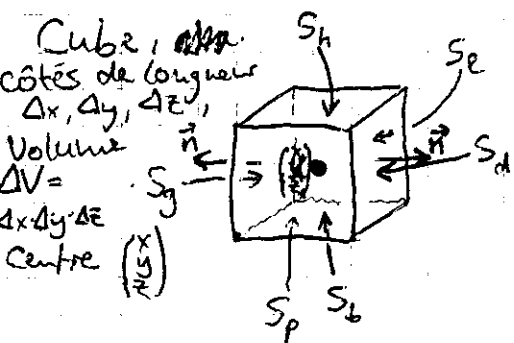 Cube,
côtés de longueur
Δx, Δy, Δz,
Volume
ΔV =
Δx·Δy·Δz
Centre (x y z)
S_h
S_e
n⃗
n⃗
S_g
S_d
(x y z)
S_p
S_b